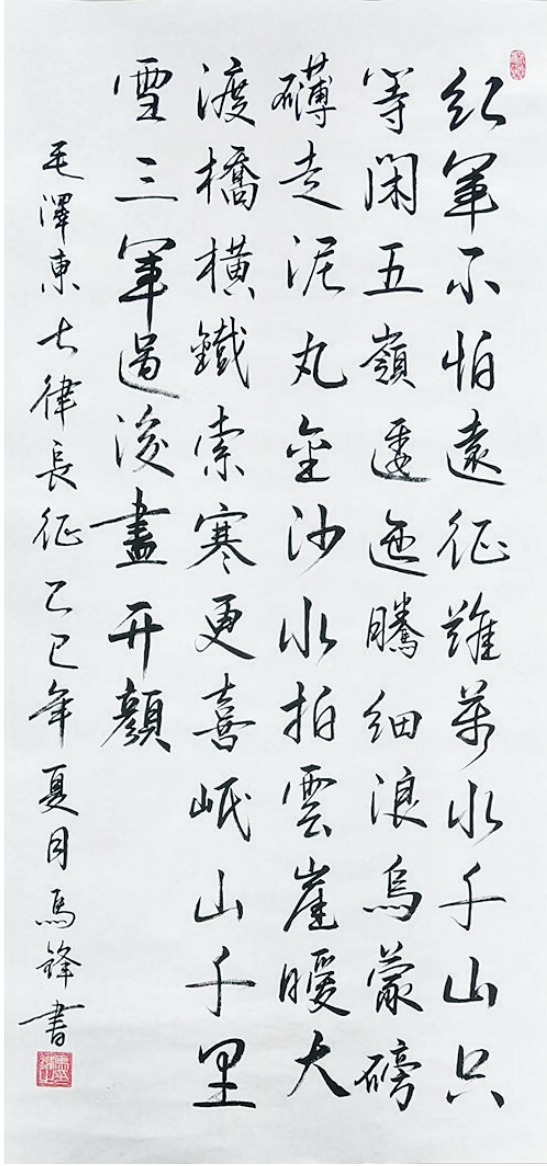 紅軍不怕遠征難萬水千山只
等閑五嶺逶迤騰細浪烏蒙磅
礴走泥丸金沙水拍雲崖暖大
渡橋橫鐵索寒更喜岷山千里
雪三軍過後盡开顏
毛澤東七律長征乙巳年夏月馬鋒書